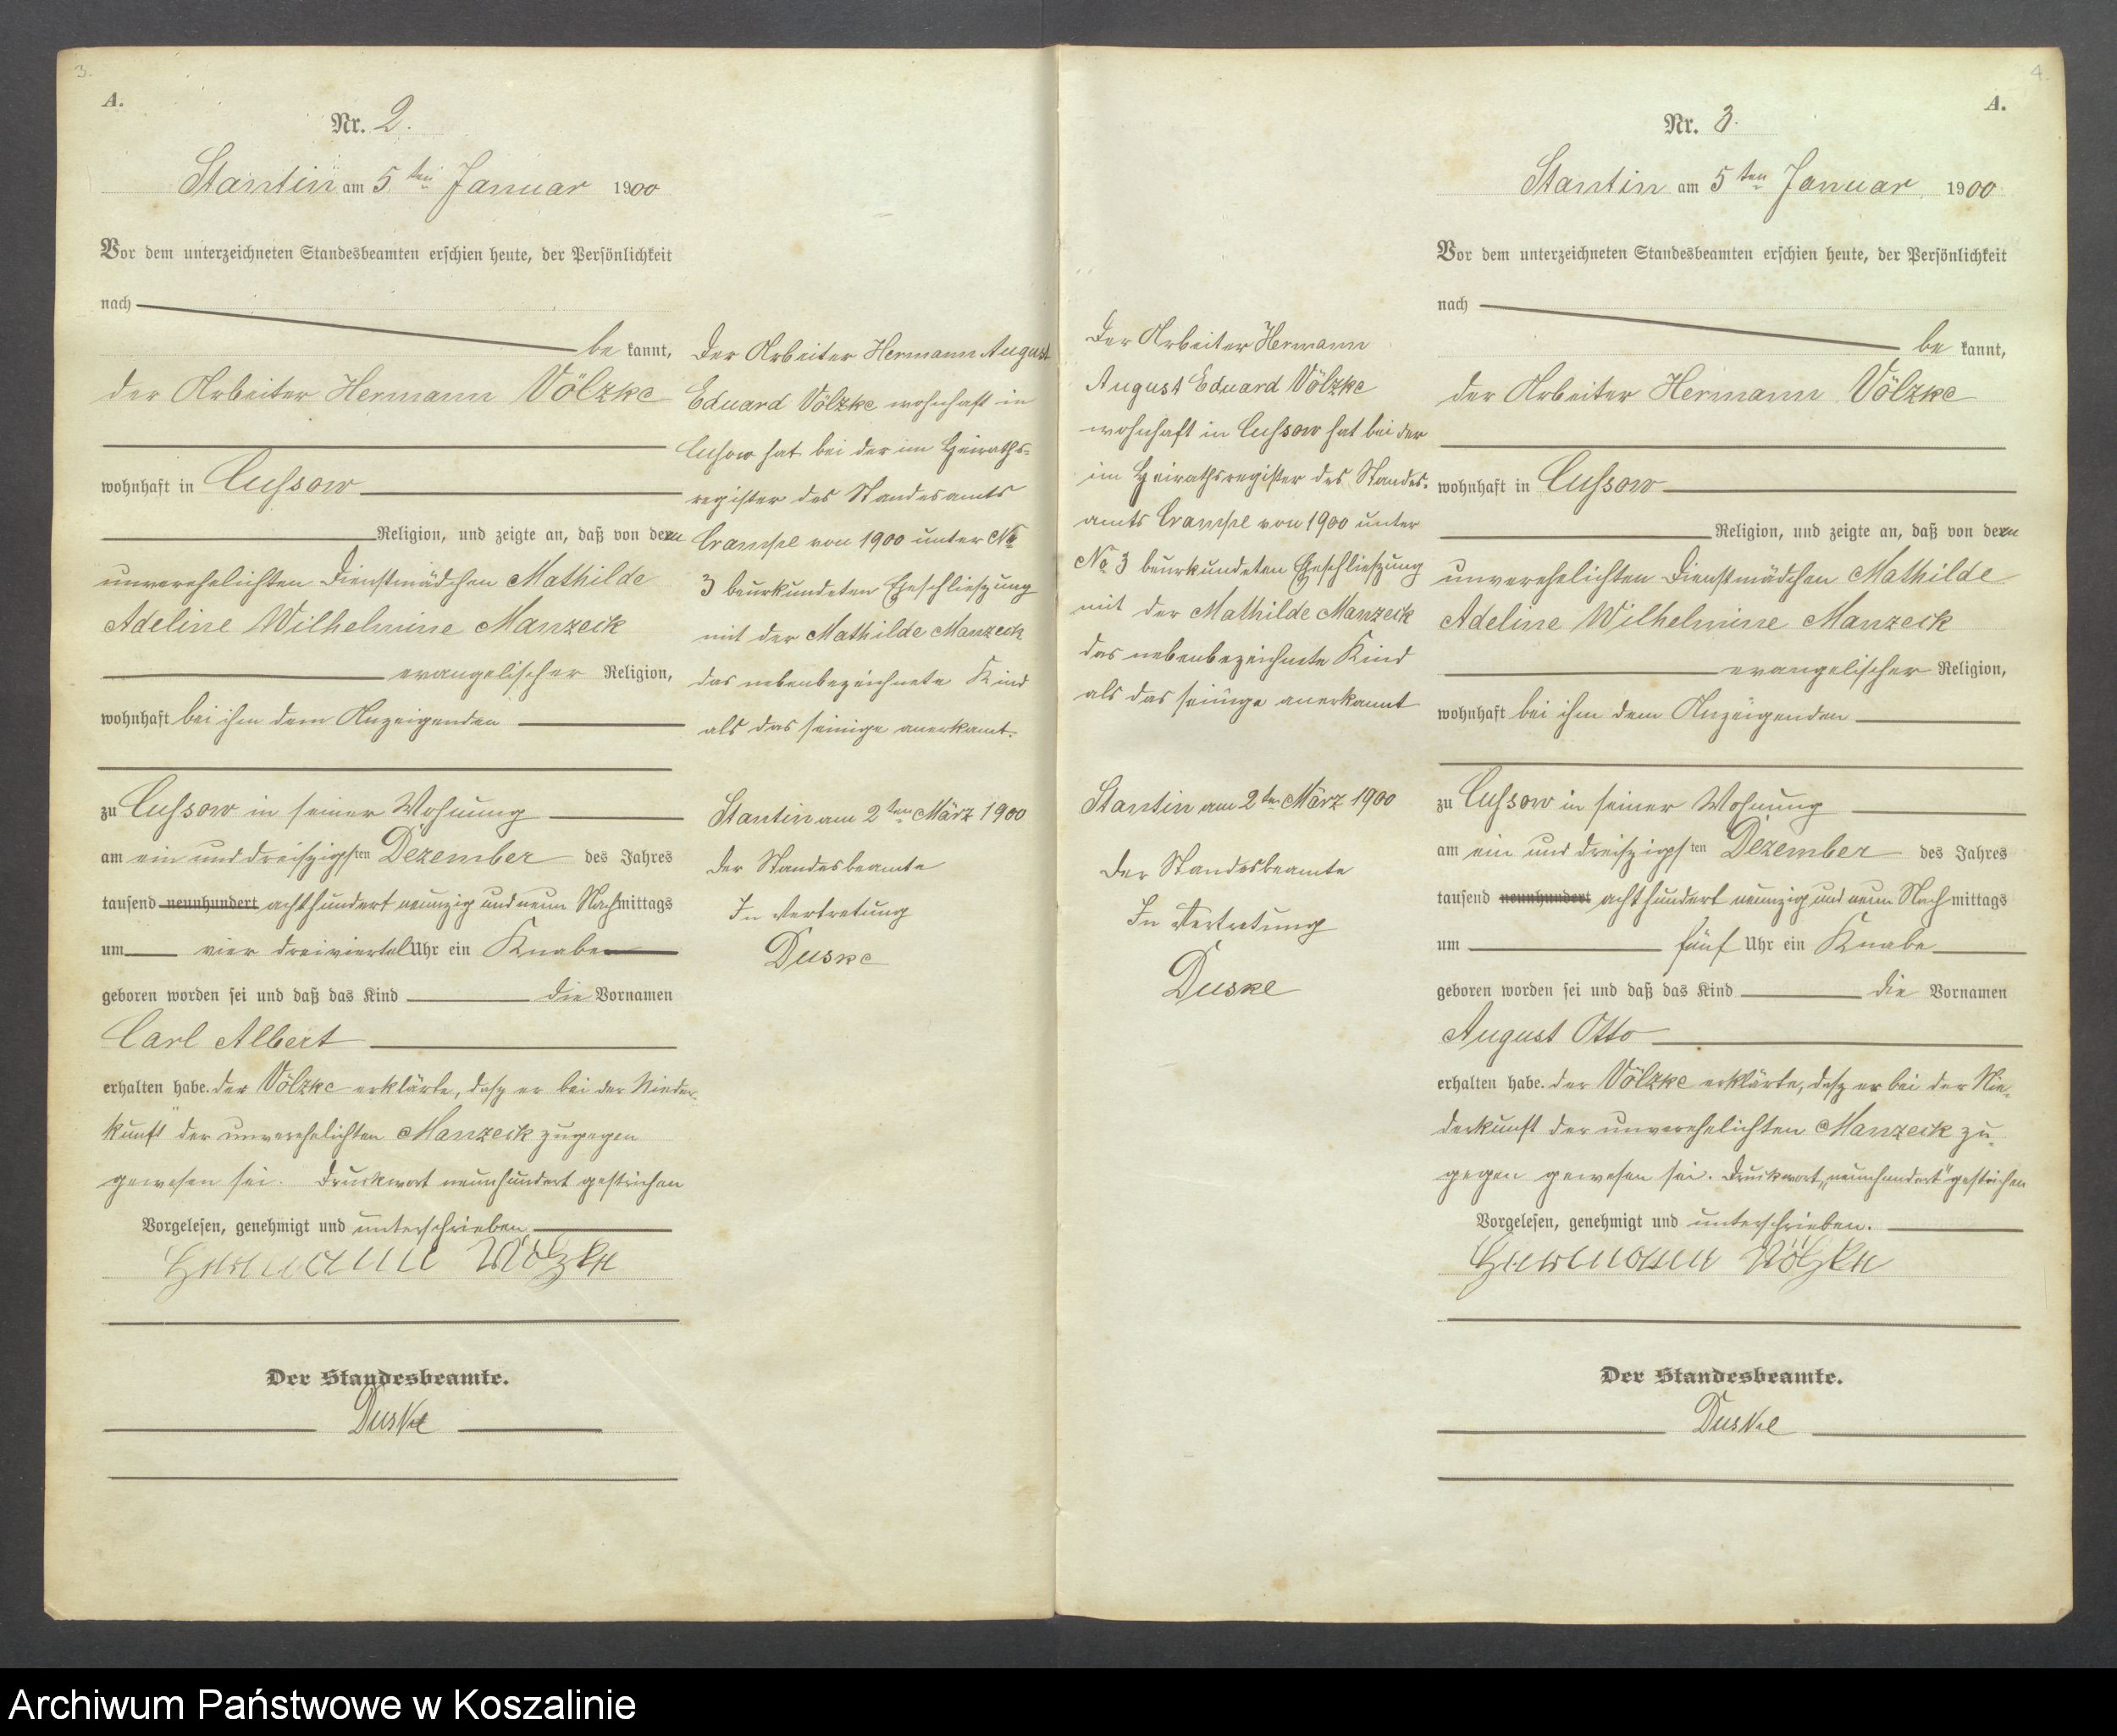 3.
A.
Nr. 2.
Stantin am 5ten Januar 1900
Vor dem unterzeichneten Standesbeamten erschien heute, der Persönlichkeit
nach
be kannt,
der Arbeiter Hermann Völzke
wohnhaft in Cussow
Religion, und zeigte an, daß von dem
unverehelichten Dienstmädchen Mathilde
Adeline Wilhelmine Manzeck
evangelischer Religion,
wohnhaft bei ihm dem Anzeigenden
zu Cussow in seiner Wohnung
am ein und dreiszigsten Dezember des Jahres
tausend neunhundert achthundert neunzig und neun Nachmittags
um vier dreiviertel Uhr ein Knabe
geboren worden sei und daß das Kind die Vornamen
Carl Albert
erhalten habe. der Völzke erklärte, dasz er bei der Nieder-
kunft der unverehelichten Manzeck zugegen
gewesen sei. Druckwort neunhundert gestrichen
Vorgelesen, genehmigt und unterschrieben
Hermann Völzke
Der Standesbeamte.
Duske
Der Arbeiter Hermann August
Eduard Völzke wohnhaft in
Cussow hat bei der im Heiraths-
register des Standesamts
von 1900 unter No
3 beurkundeten Eheschlieszung
mit der Mathilde Manzeck
das nebenbezeichnete Kind
als das seinige anerkannt.
Stantin am 2ten März 1900
Der Standesbeamte
In Vertretung
Duske
Der Arbeiter Hermann
August Eduard Völzke
wohnhaft in Cussow hat bei der
im Heirathsregister des Standes-
amts von 1900 unter
No 3 beurkundeten Eheschlieszung
mit der Mathilde Manzeck
das nebenbezeichnete Kind
als das seinige anerkannt
Stantin am 2ten März 1900
Der Standesbeamte
In Vertretung
Duske
4.
A.
Nr. 3.
Stantin am 5ten Januar 1900
Vor dem unterzeichneten Standesbeamten erschien heute, der Persönlichkeit
nach
be kannt,
der Arbeiter Hermann Völzke
wohnhaft in Cussow
Religion, und zeigte an, daß von dem
unverehelichten Dienstmädchen Mathilde
Adeline Wilhelmine Manzeck
evangelischer Religion,
wohnhaft bei ihm dem Anzeigenden
zu Cussow in seiner Wohnung
am ein und dreiszigsten Dezember des Jahres
tausend neunhundert achthundert neunzig und neun Nachmittags
um fünf Uhr ein Knabe
geboren worden sei und daß das Kind die Vornamen
August Otto
erhalten habe. der Völzke erklärte, dasz er bei der Nie-
derkunft der unverehelichten Manzeck zu-
gegen gewesen sei. Druckwort „neunhundert" gestrichen
Vorgelesen, genehmigt und unterschrieben.
Hermann Völzke
Der Standesbeamte.
Duske
Archiwum Państwowe w Koszalinie